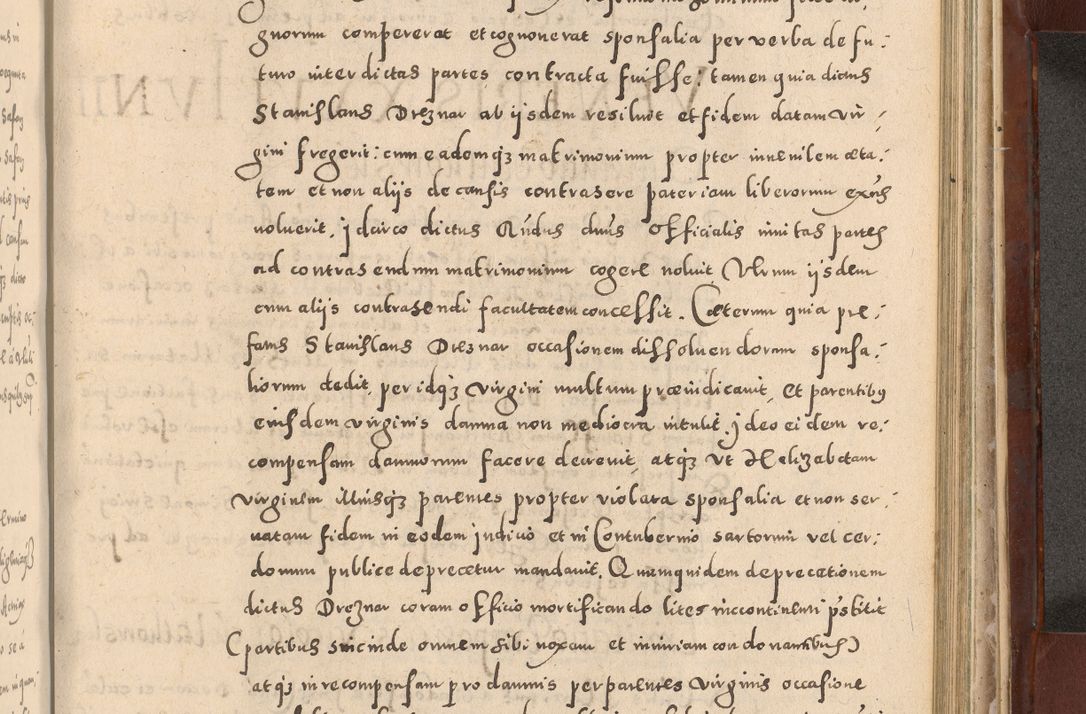 gnorum compererat et cognouerat sponsalia per verba de fu:
turo inter dictas partes contracta fuisse: tamen quia dictus
Stanislaus Dreznar ab ijsdem resiluit et fidem datam vir:
gini fregerit: cum eademq3 matrimonium propter iuuenilem æta:
tem et non alijs de causis contrahere pateriam liberorum
noluerit, jdcirco dictus Rndus dnus Officialis inuitas partes
ad contrahendum matrimonium cogere noluit Verum ijsdem
cum alijs contrahendi facultatem concessit. Cæterum quia pre:
fatus Stanislaus Dreznar occasionem dissoluendorum sponsa:
liorum dedit, per idq3 virgini multum præiudicauit, et parentibus
eiusdem virginis damna non mediocra intulit, jdeo eidem re:
compensam damnorum facere decreuit, atq3 vt Helizabetam
virginem illiusq3 parentes propter violata sponsalia et non ser:
uatam fidem in eodem judicio et in Contubernio sartorum vel cer:
donum publice deprecetur mandauit. Quamquidem deprecationem
dictus Dreznar coram officio mortificando lites inccontinenti pstitit
(partibus sincinde omnem sibi noxam et iniuriam condonantibus)
atq3 in recompensam pro damnis per parentes virginis occasione